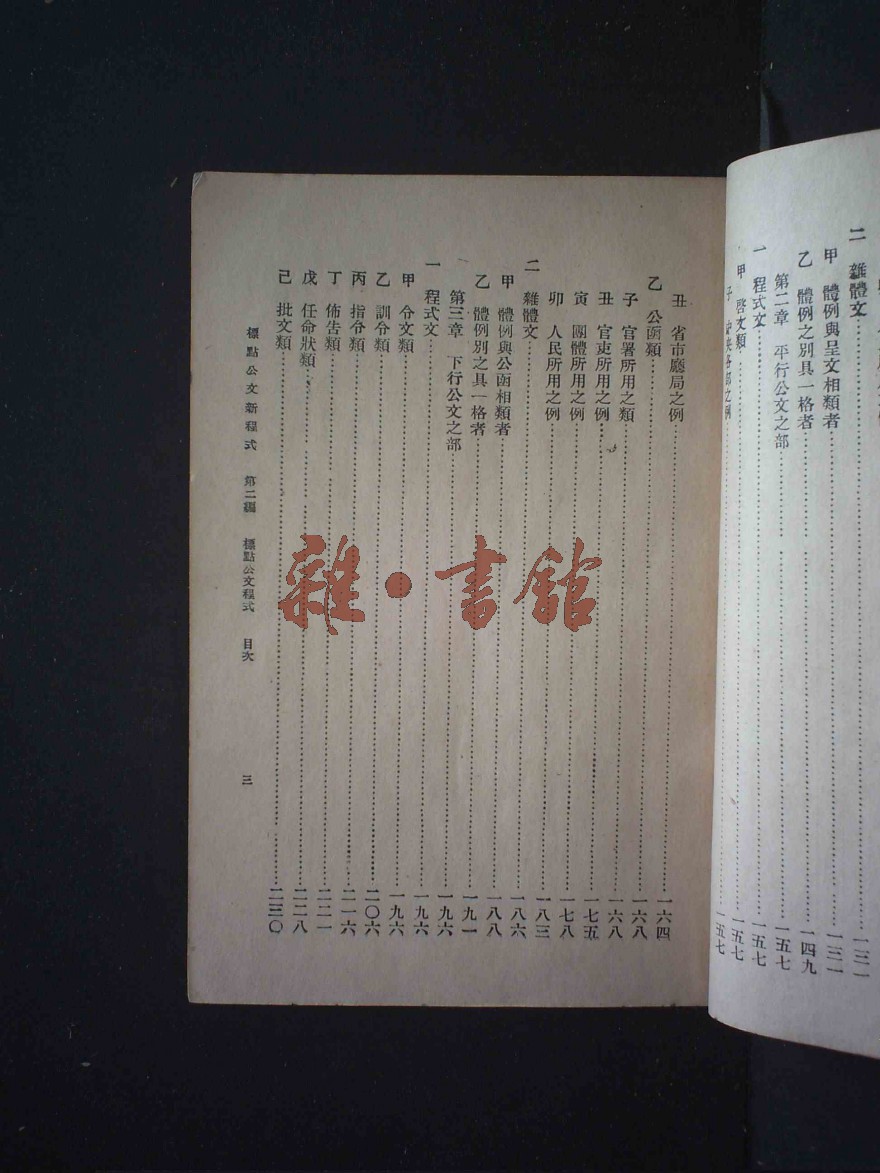 二 雜體文……一三一
甲 體例與呈文相類者……一三一
乙 體例之別具一格者……一四九
第二章 平行公文之部……一五七
一 程式文……一五七
甲 咨文類……一五七
子 各部之例……一五七
丑 省市廳局之例……一六四
乙 公函類……一六八
子 官署所用之類……一六八
丑 官吏所用之例……一七五
寅 團體所用之例……一七八
卯 人民所用之例……一八三
二 雜體文……一八六
甲 體例與公函相類者……一八八
乙 體例別之具一格者……一九一
第三章 下行公文之部……一九六
一 程式文……一九六
甲 令文類……一九六
乙 訓令類……二〇六
丙 指令類……二一六
丁 佈告類……二二一
戊 任命狀類……二二八
己 批文類……二三〇
標點公文新程式 第二編 標點公文程式 目次 三
雜·書館